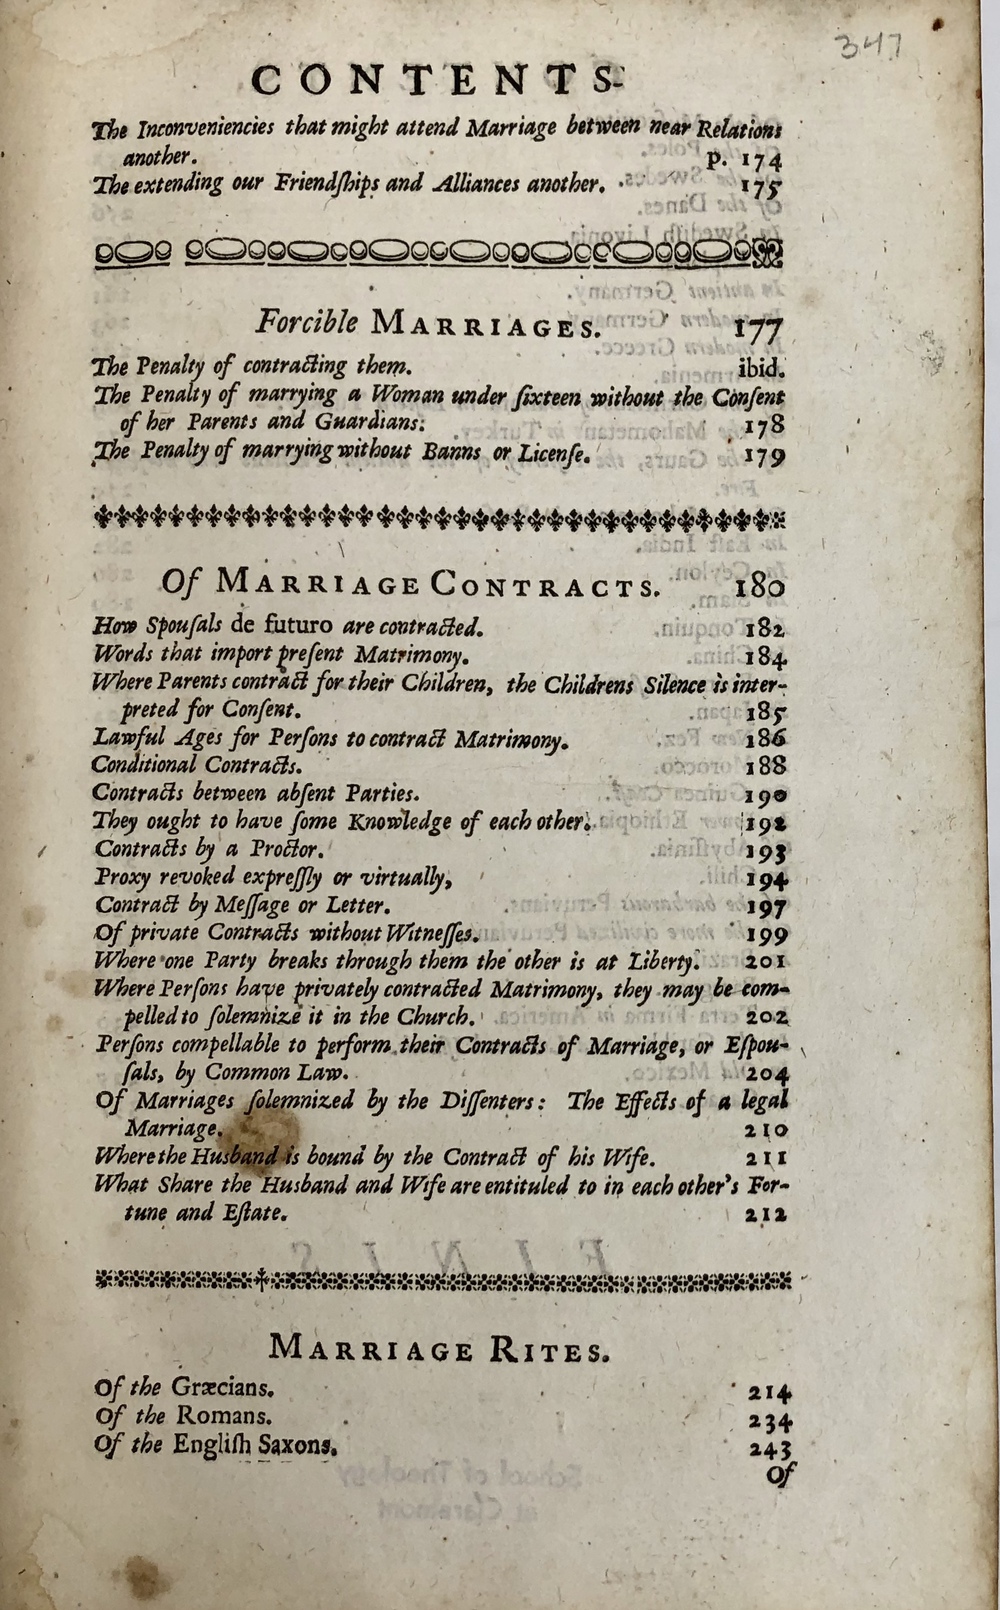 347
CONTENTS.
The Inconveniencies that might attend Marriage between near Relations
another. p. 174
The extending our Friendſhips and Alliances another. 175
Forcible MARRIAGES. 177
The Penalty of contracting them. ibid.
The Penalty of marrying a Woman under ſixteen without the Conſent
of her Parents and Guardians. 178
The Penalty of marrying without Banns or Licenſe. 179
Of MARRIAGE CONTRACTS. 180
How Spouſals de futuro are contracted. 182
Words that import preſent Matrimony. 184
Where Parents contract for their Children, the Childrens Silence is inter-
preted for Conſent. 185
Lawful Ages for Perſons to contract Matrimony. 186
Conditional Contracts. 188
Contracts between abſent Parties. 190
They ought to have ſome Knowledge of each other. 192
Contracts by a Proctor. 193
Proxy revoked expreſſly or virtually, 194
Contract by Meſſage or Letter. 197
Of private Contracts without Witneſſes. 199
Where one Party breaks through them the other is at Liberty. 201
Where Perſons have privately contracted Matrimony, they may be com-
pelled to ſolemnize it in the Church. 202
Perſons compellable to perform their Contracts of Marriage, or Eſpou-
ſals, by Common Law. 204
Of Marriages ſolemnized by the Diſſenters: The Effects of a legal
Marriage. 210
Where the Husband is bound by the Contract of his Wife. 211
What Share the Husband and Wife are entituled to in each other's For-
tune and Eſtate. 212
MARRIAGE RITES.
Of the Græcians. 214
Of the Romans. 234
Of the Engliſh Saxons. 243
Of